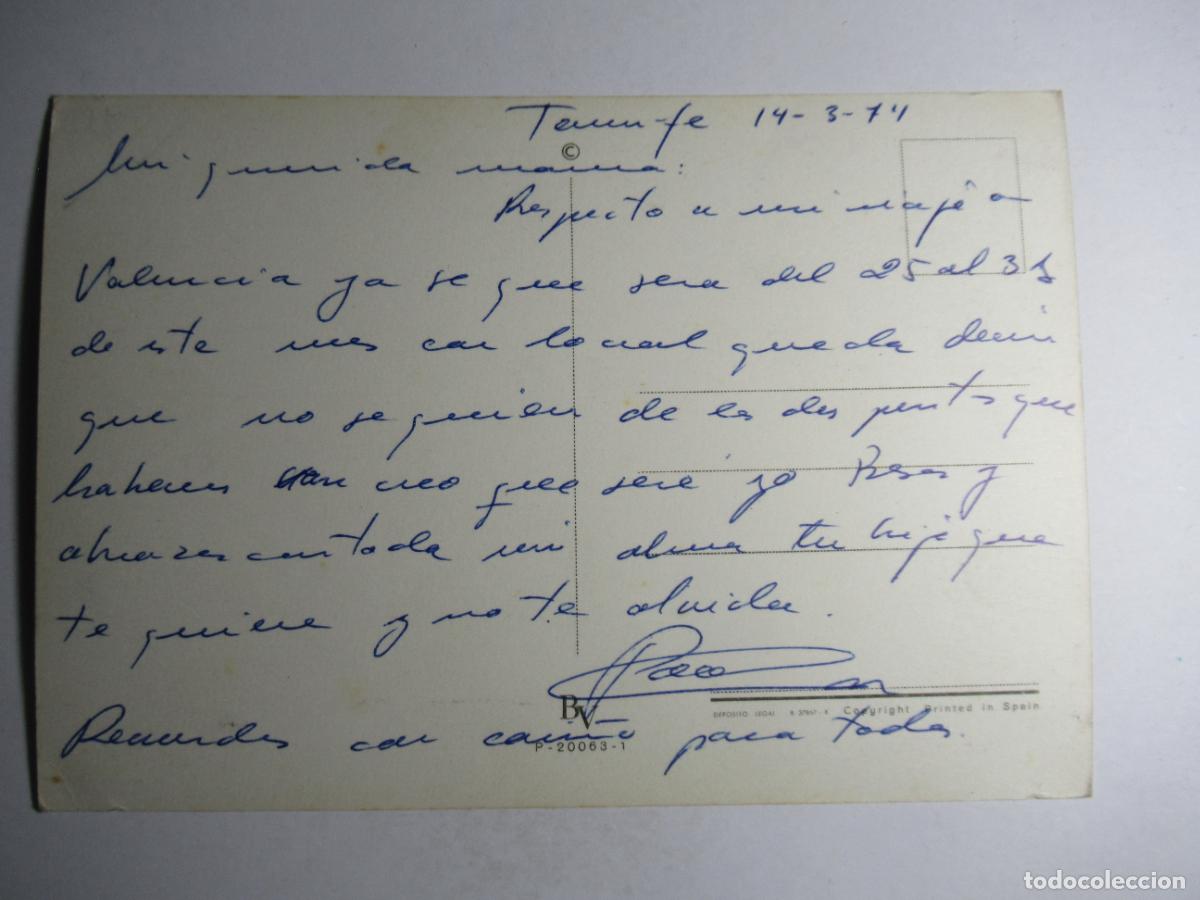 Tenerife 14-3-74
©
Mi querida mama:
Respecto a mi viaje a
Valencia ya se que sera del 25 al 31
de este mes con lo cual queda decir
que no se quien de los dos
que sere yo Besos y
abrazos con toda mi alma tu hijo que
te quiere y no te olvida.
Paco
BV
DEPOSITO LEGAL Copyright Printed in Spain
Recuerdos con cariño para todos.
P-20063-1
todocoleccion